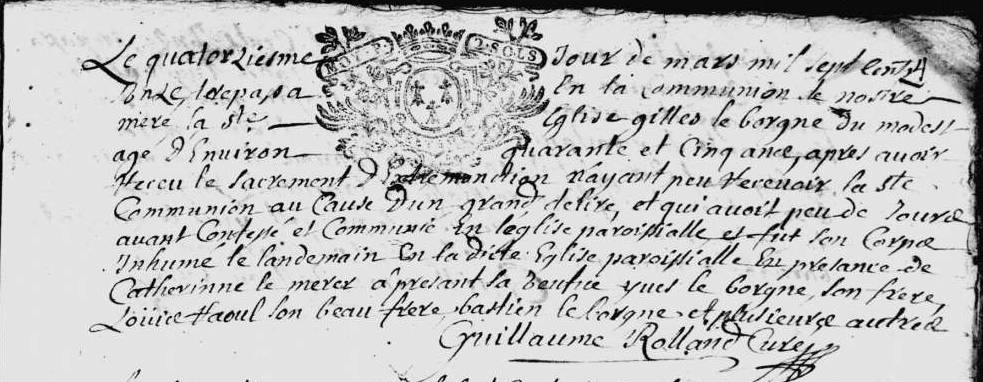 Le quatorziesme Jour de mars mil sept cents
onze, trepassa En la communion de nostre
mere la Ste Eglise gilles le borgne du modest
agé d'Environ quarante et cinq ans, apres avoir
receu le sacrement d'Extremonction n'ayant peu recevoir la ste
Communion au Cause d'un grand delire, et qui avoit peu de Jours
avant Confessé et Communié En l'église paroissialle et fut son Corps
Inhumé le landemain En la dicte Eglise paroissialle En presance de
Catherinne le merer à presant sa veufve yves le borgne, son frere,
Louise Raoul son beau frere, bastien le borgne et plusieurs autres
Guillaume Rolland Curé
MOY. P. 2. SOLS